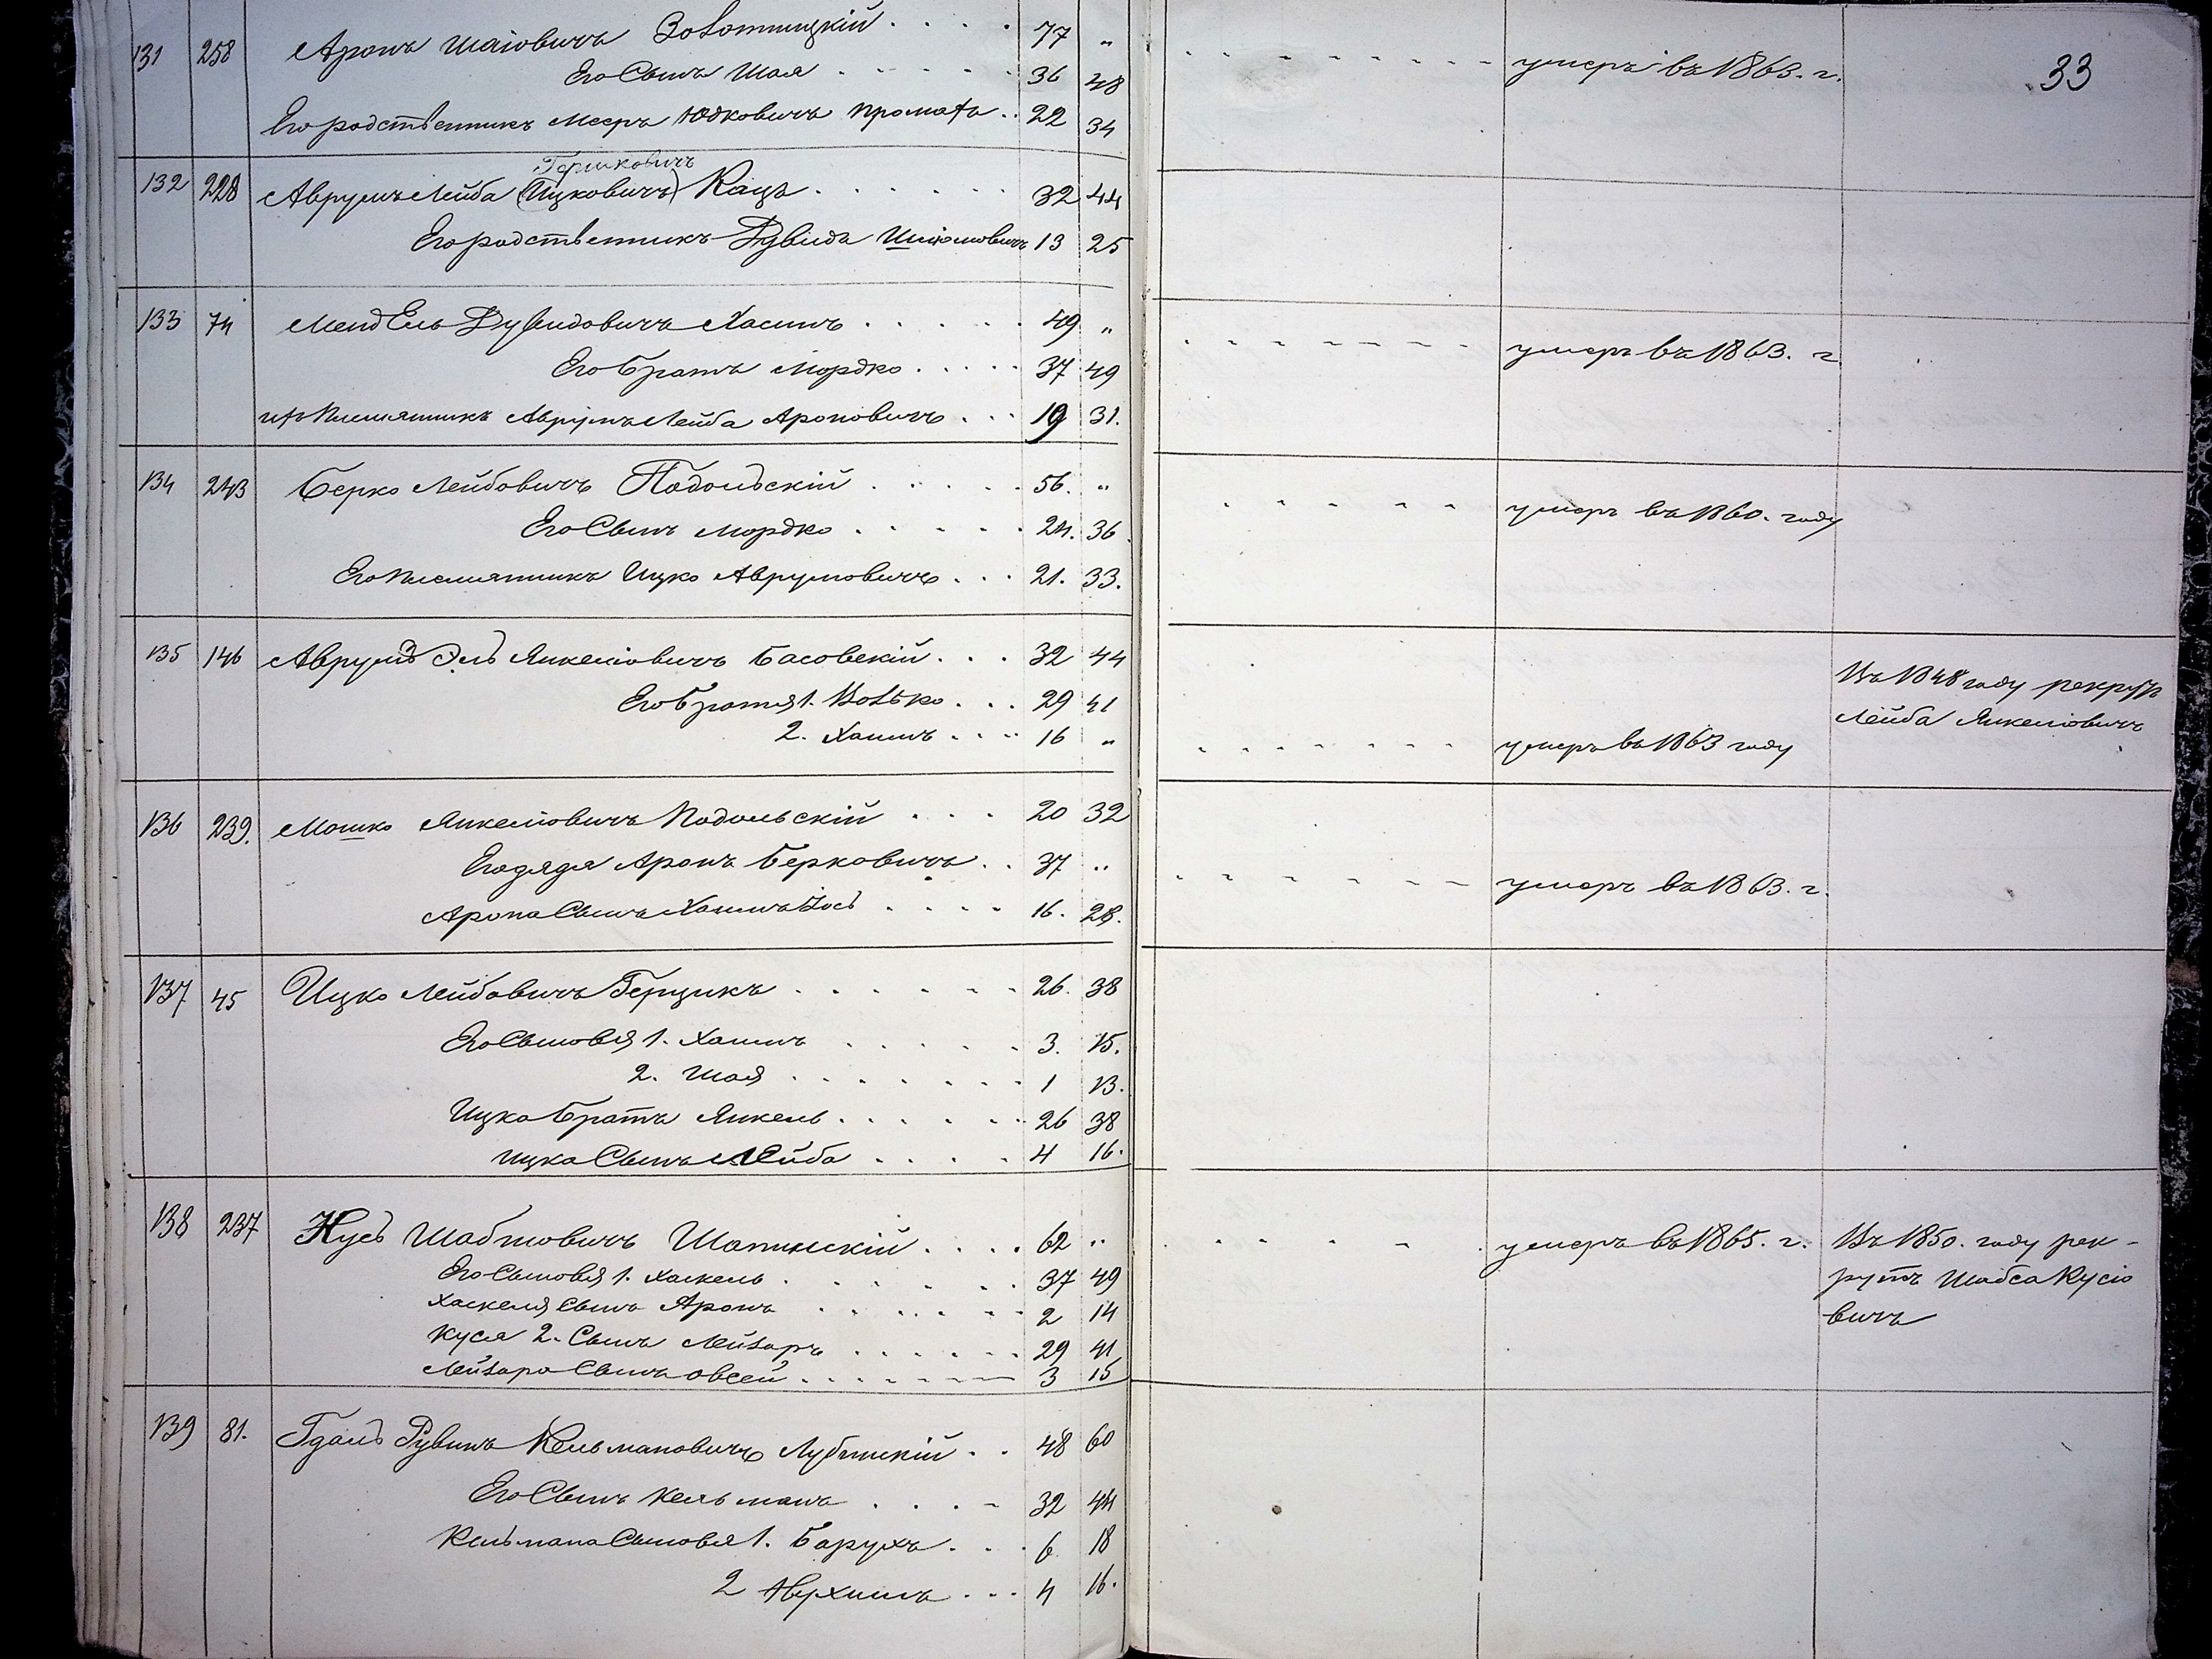 33
131 258 Аронъ Шаіовичъ Золотницкій . . . . 77 „ - - - - умеръ въ 1863. г.
Его Сынъ Шая . . . . . 36 48
Его родственникъ Мееръ Юдковичъ . . 22 34
Гершковичъ
132 228 Аврумъ Лейба (Ицковичъ) Кацъ . . . . . . 32 44
Его родственникъ Дувидъ Шліомовичъ 13 25
133 74 Мендель Дувидовичъ Хасинъ . . . . . 49 „ - - - - умеръ въ 1863. г
Его братъ Мордко . . . . . 37 49
их Племянникъ Аврумъ Лейба Ароновичъ . . . 19 31.
134 243 Берко Лейбовичъ Подольскій . . . . . 56. „ - - - - умеръ въ 1860. году
Его Сынъ Мордко . . . . . 24. 36.
Его племянникъ Ицко Аврумовичъ . . . 21. 33.
135 146 Аврумъ Эль Янкеліовичъ Басовскій . . . 32 44 Въ 1848 году рекрутъ
Его братья 1. Волько . . . 29 41 Лейба Янкеліовичъ
2. Хаимъ . . . 16 „ - - - - умеръ въ 1863 году
136 239. Мошко Янкеліовичъ Подольскій . . . 20 32
Его дядя Аронъ Берковичъ . . 37 „ - - - - умеръ въ 1863. г.
Арона Сынъ Хаимъ Іось . . . . 16. 28.
137 45 Ицко Лейбовичъ Герцикъ . . . . . . 26. 38
Его Сыновья 1. Хаимъ . . . . . 3. 15.
2. Шая . . . . . . . 1 13.
Ицка братъ Янкель . . . . . . 26 38
Ицка Сынъ Лейба . . . . 4 16.
138 237 Кусь Шабтовичъ Шапинскій . . . . 62 „ - - - - умеръ въ 1865. г. Въ 1850. году рек-
Его Сыновья 1. Хаскель . . . . . . 37 49 рутъ Шабса Кусіо
Хаскеля Сынъ Аронъ . . . . . . 2 14 вичъ
Куся 2. Сынъ Лейзаръ . . . . . . 29 41
Лейзара Сынъ Овсей . . . . . . 3 15
139 81. Гдаль Рувинъ Кельмановичъ Лубинскій . . 48 60
Его Сынъ Кельманъ . . . . 32 44
Кельмана Сыновья 1. Барухъ . . . 6 18
2 Аврхимъ . . . 4 16.